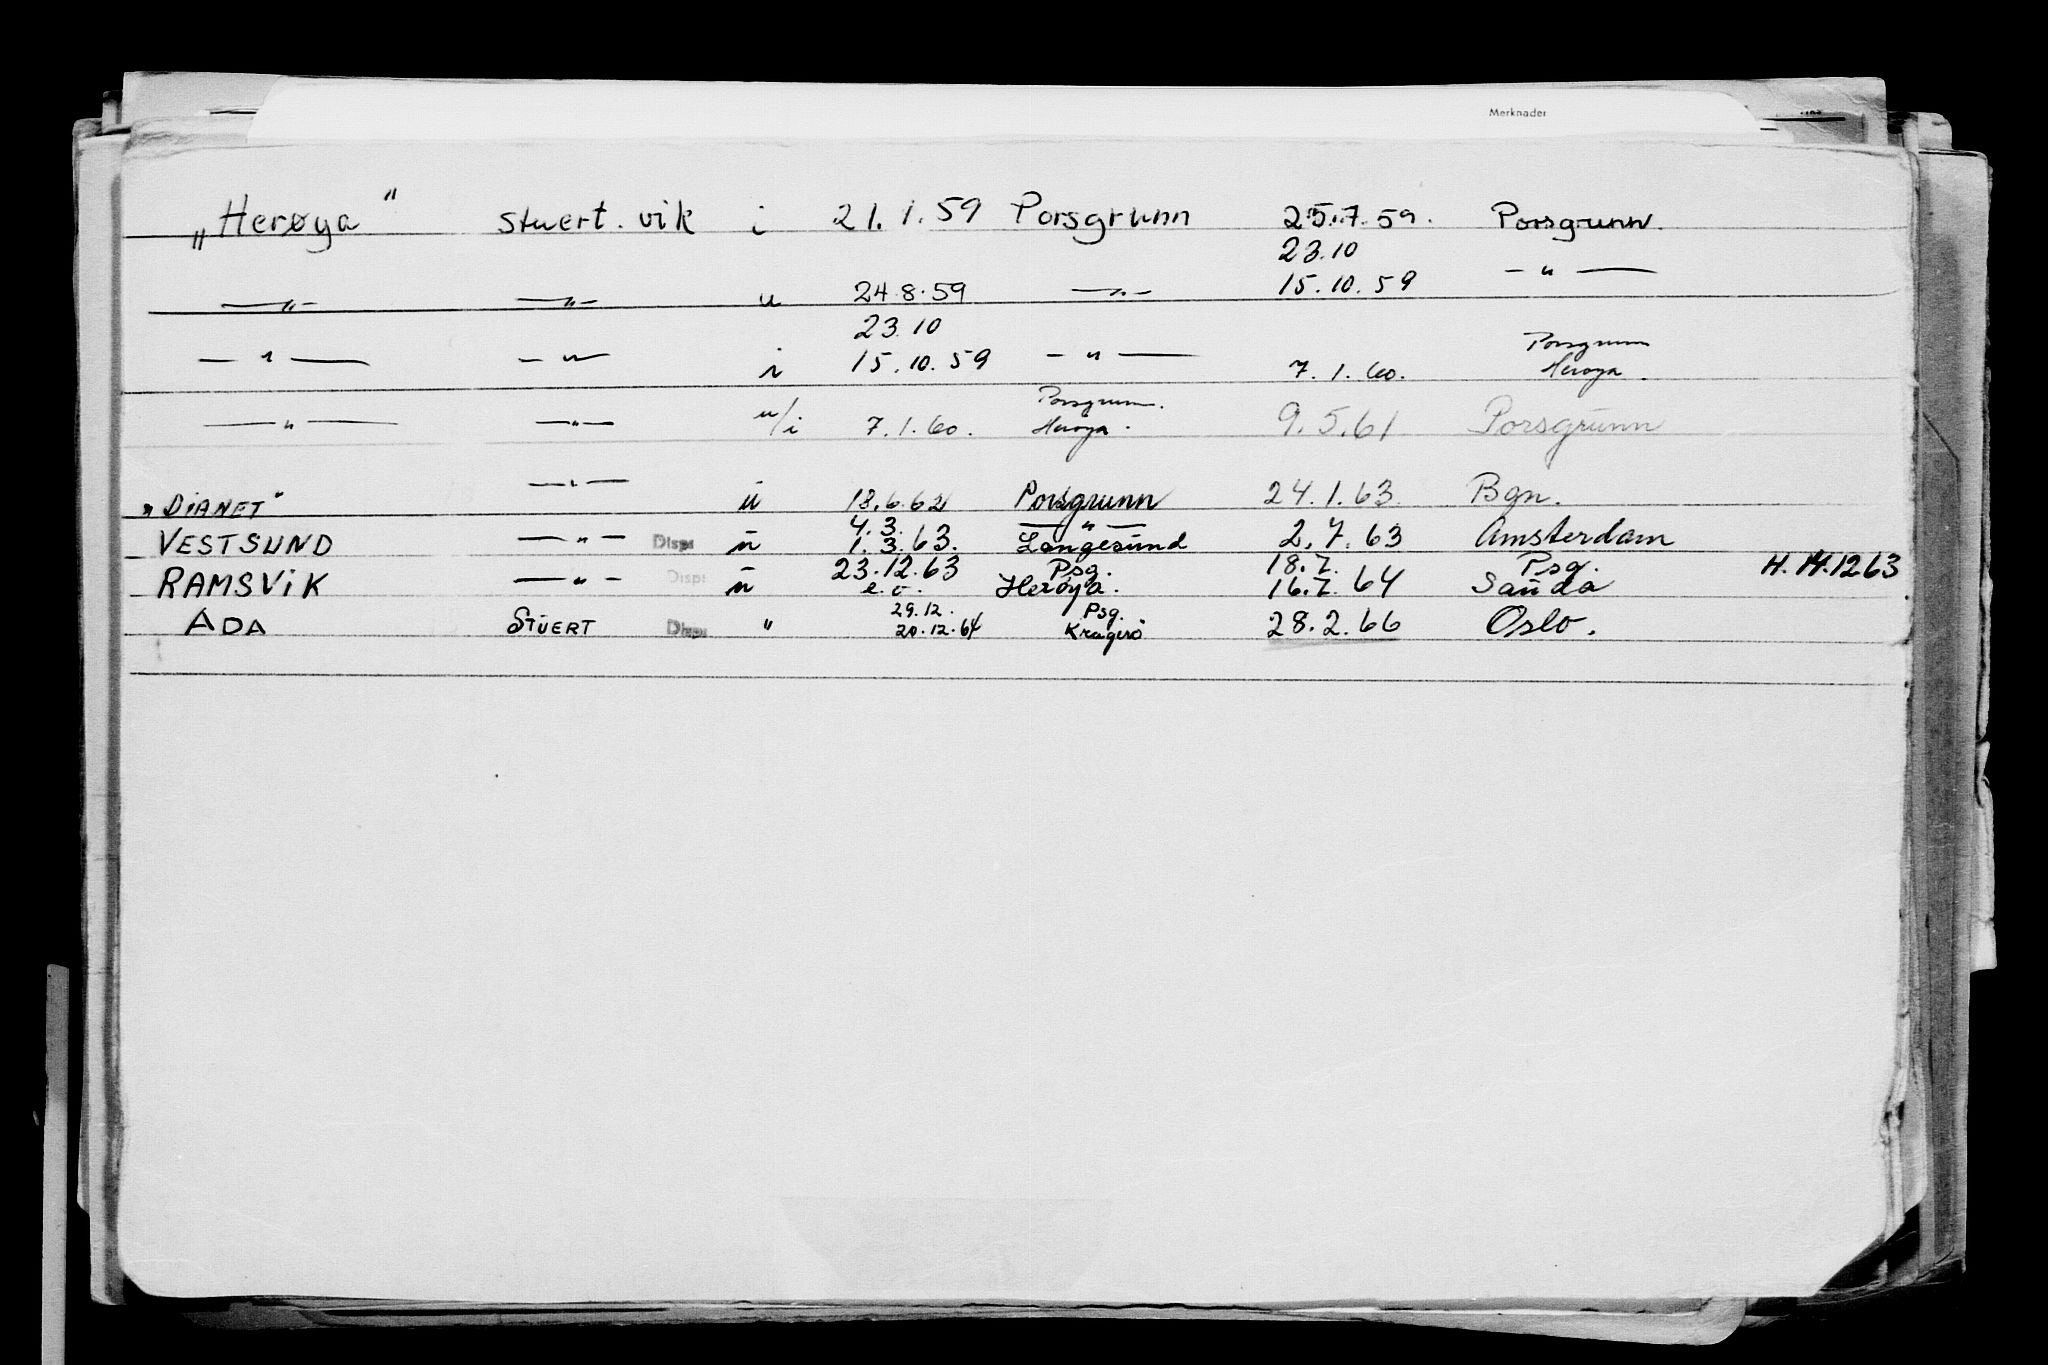 Merknader
„Herøya" Stuert. vik i 21.1.59 Porsgrunn 25.7.59. Porsgrunn.
23.10
—„— —„— u 24.8.59 —„— 15.10.59 —"—
23.10
—"— —"— i 15.10.59 —"— 7.1.60. Porsgrunn Herøya.
—"— —"— u/i 7.1.60. Porsgrunn. Herøya. 9.5.61 Porsgrunn
„DIANET" —"— u 18.6.62 Porsgrunn 24.1.63. Bgn.
4.3. —"—
VESTSUND —"— Disp: u 1.3.63. Langesund 2.7.63 Amsterdam
23.12.63 Psg. 18.7. Psg. H. 14.1263
RAMSVIK —"— Disp: u e.o. Herøya. 16.7.64 Sauda
29.12. Psg.
ADA STUERT Disp: " 20.12.64 Kragerö 28.2.66 Oslo.